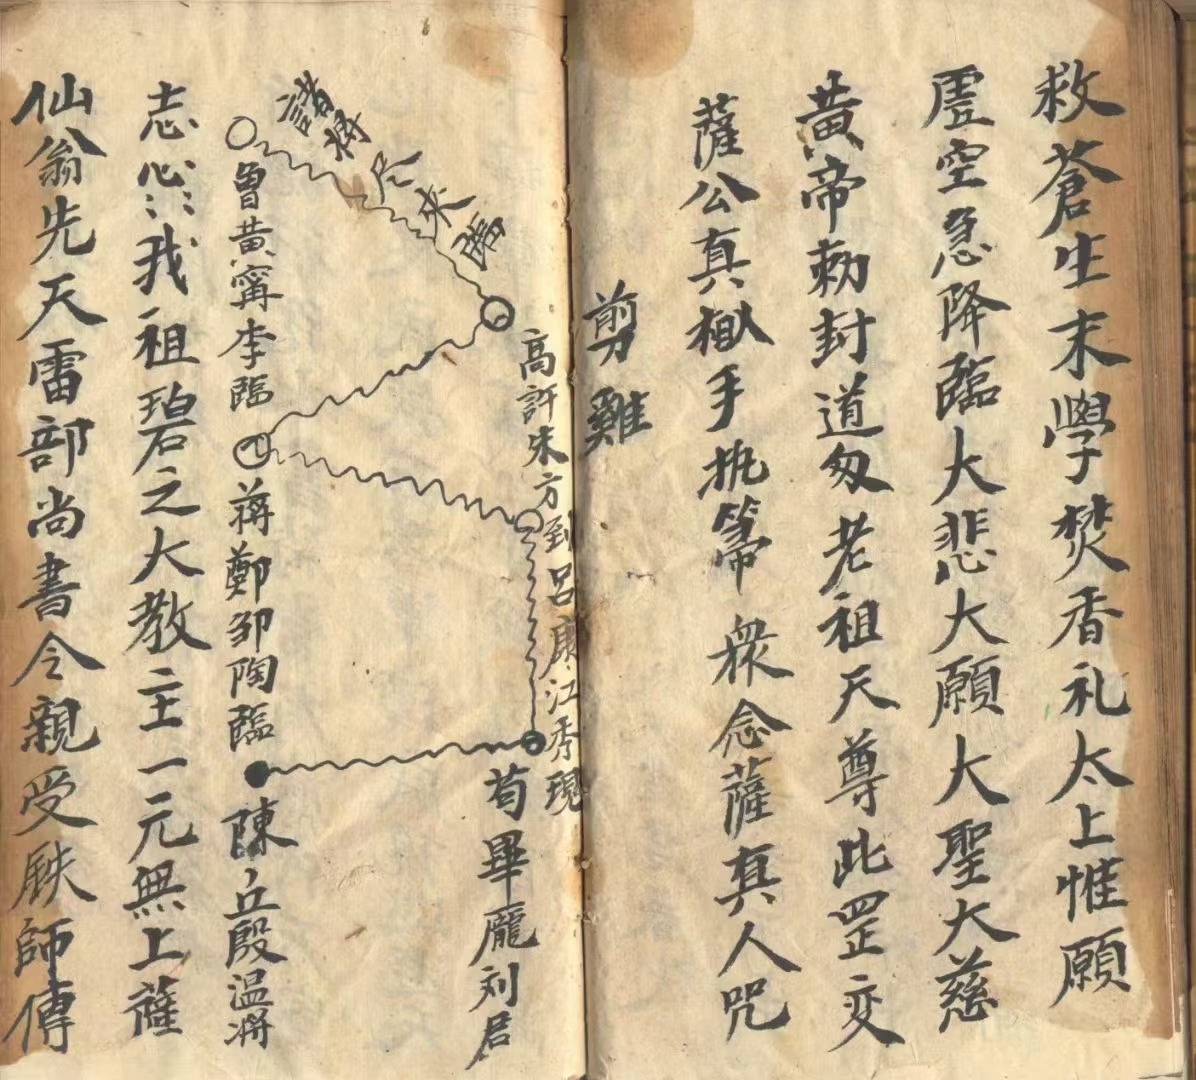 救蒼生末學焚香礼太上惟願
虛空急降臨大悲大願大聖大慈
黃帝勅封道匁老祖天尊此罡变
薩公真樾手执箒 衆念薩真人咒
剪雞
高許朱方到呂康江秀現
苟畢龐刘君
諸將尽来臨
曾黃甯李臨
蔣鄭邹陶臨
陳丘殷温將
志心我祖碧之大教主一元無上薩
仙翁先天雷部尚書令親受鉄師傳